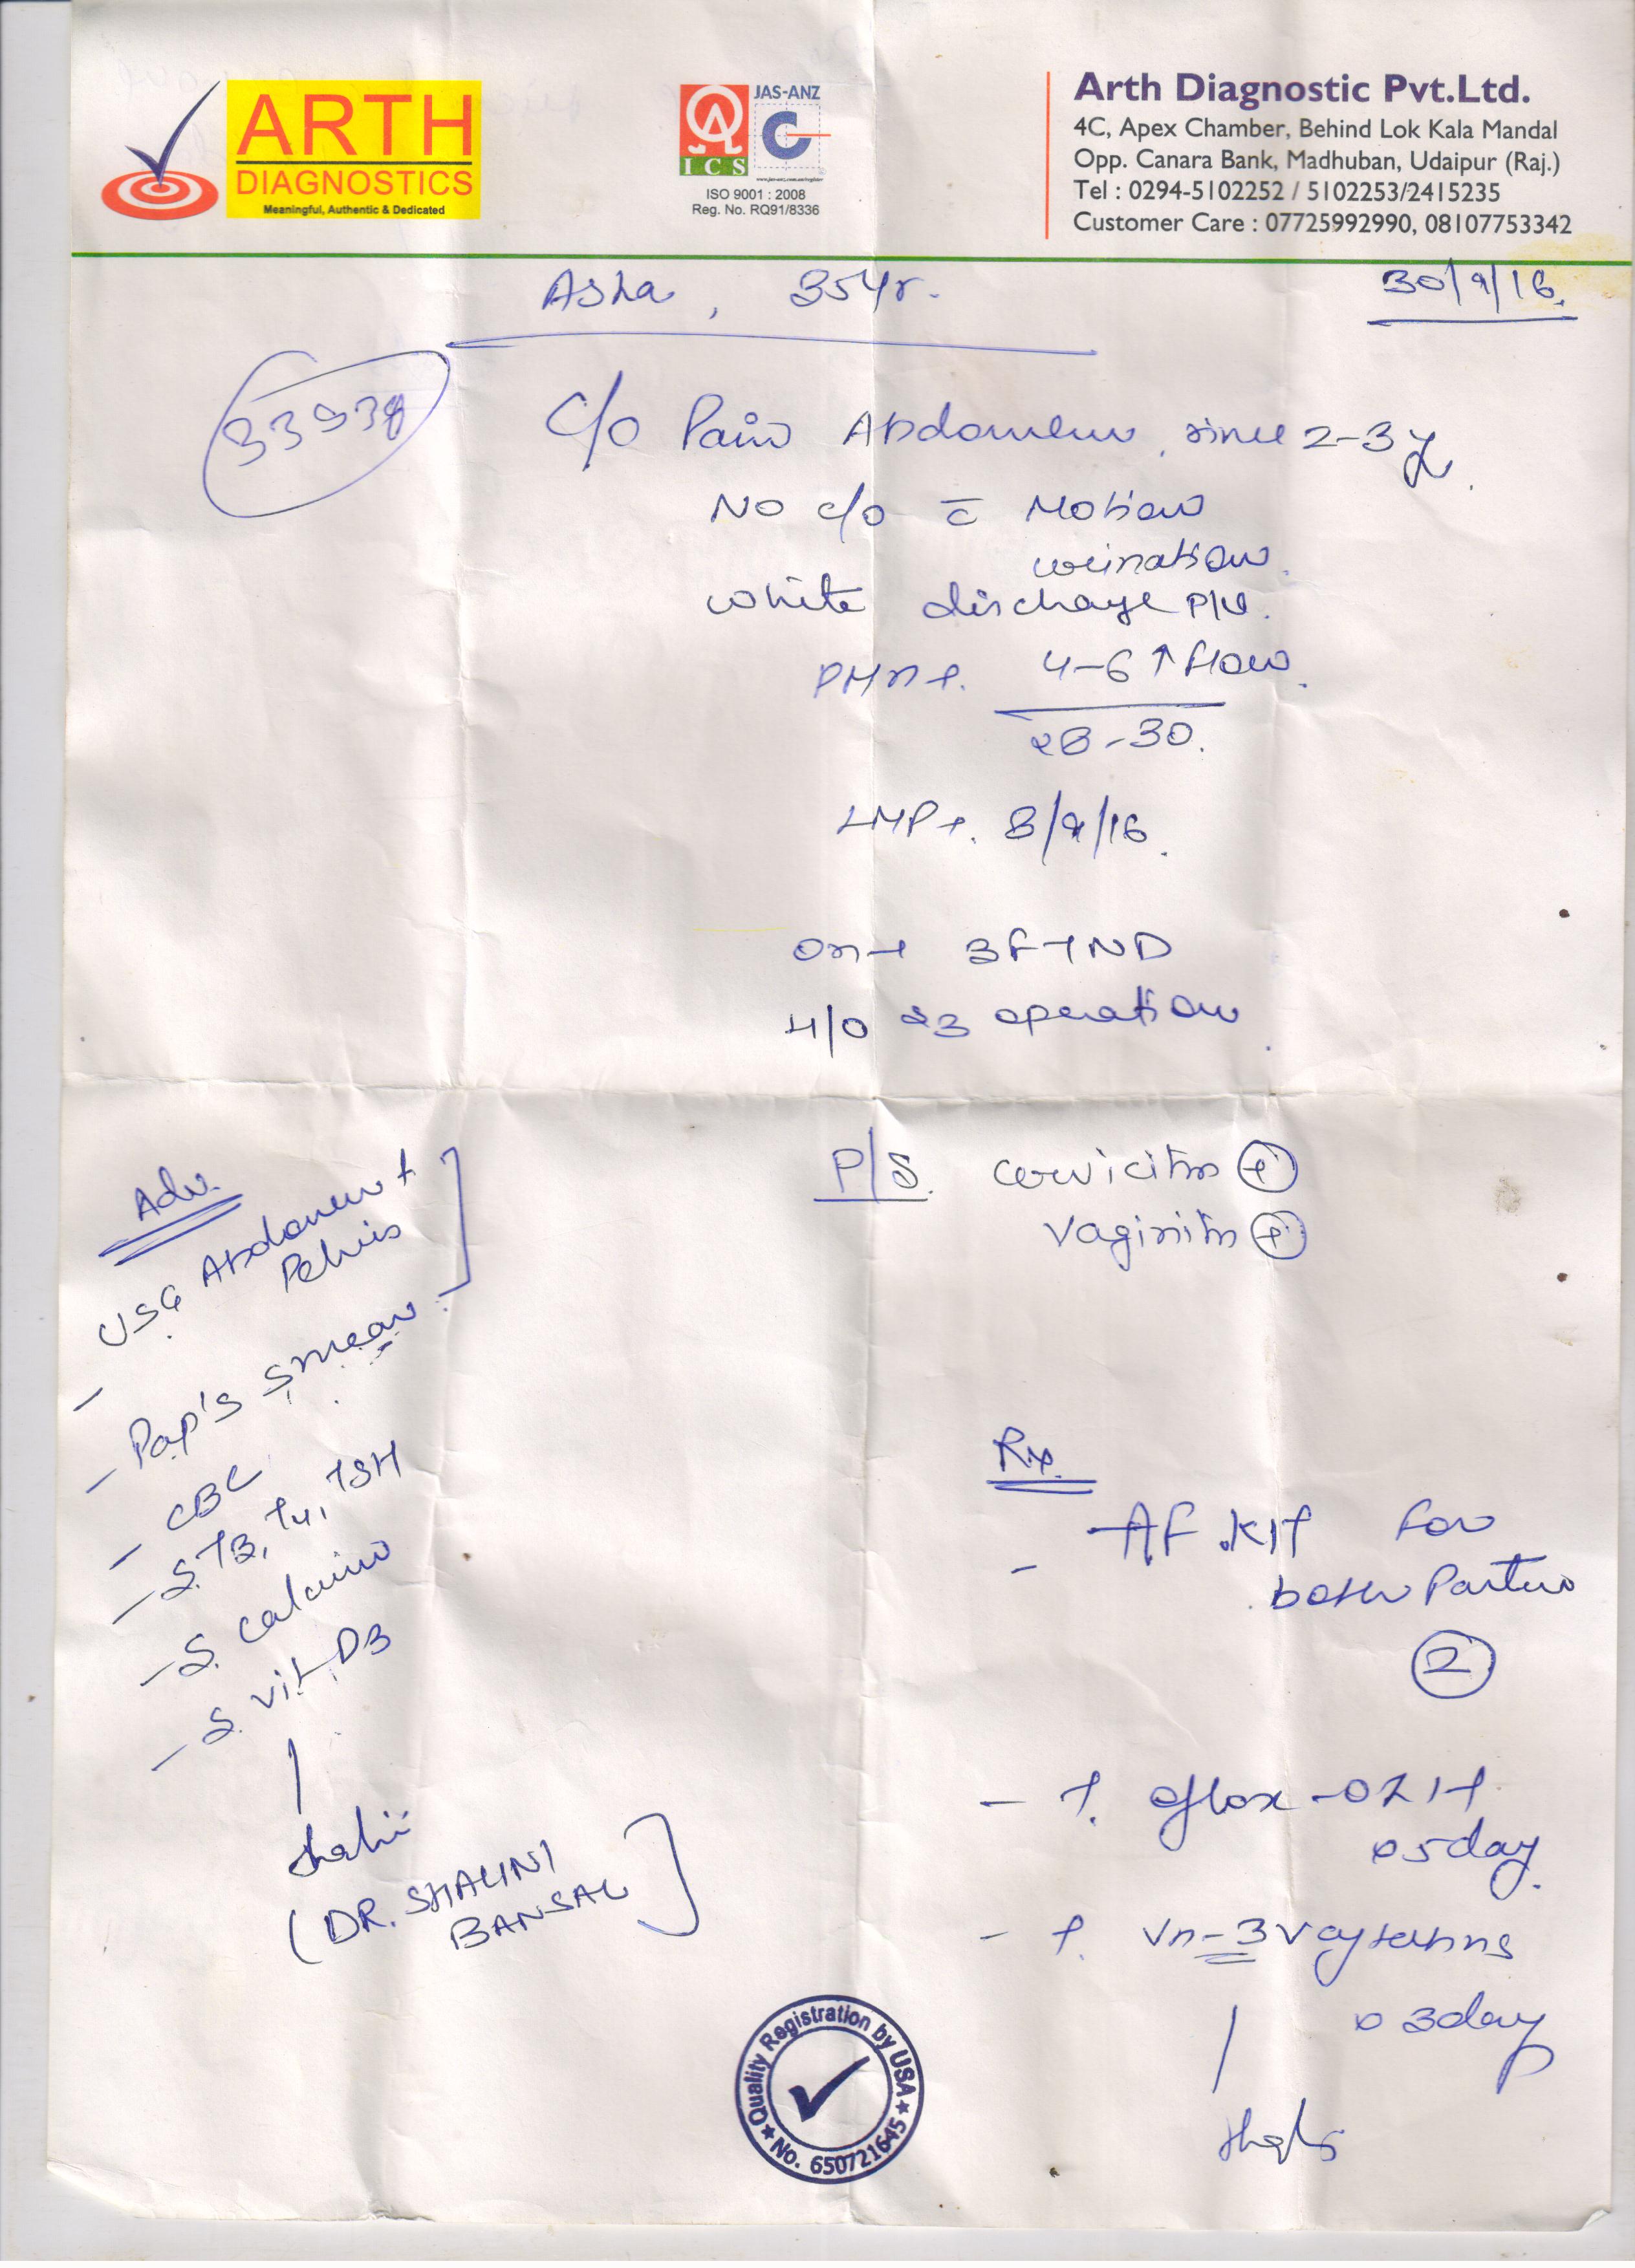 ARTH
DIAGNOSTICS
Meaningful, Authentic & Dedicated
ICS
JAS-ANZ
www.jas-anz.com.au/register
ISO 9001 : 2008
Reg. No. RQ91/8336
Arth Diagnostic Pvt.Ltd.
4C, Apex Chamber, Behind Lok Kala Mandal
Opp. Canara Bank, Madhuban, Udaipur (Raj.)
Tel : 0294-5102252 / 5102253/2415235
Customer Care : 07725992990, 08107753342
Asha, 35Yr.
30/9/16.
C/o Pain Abdomen, since 2-3y
No c/o c̄ Motion
urination.
white discharge P/V.
4-6 ↑ flow.
28-30.
LMP 8/9/16.
3FTND
H/O operation
P/S. cervicitis +
vaginitis +
Adv.
- USG Abdomen +
Pelvis
- Pap's smear
- CBC
- S. T3, T4, TSH
- S. calcium
- S. vit D3
(DR. SHALINI
BANSAL
Rx.
- AF KIT for
both Partner
2
- T. oflox-OZ 1-1
x 5day.
- T. Vn-3
x 3day
Quality Registration by USA
No. 650721645